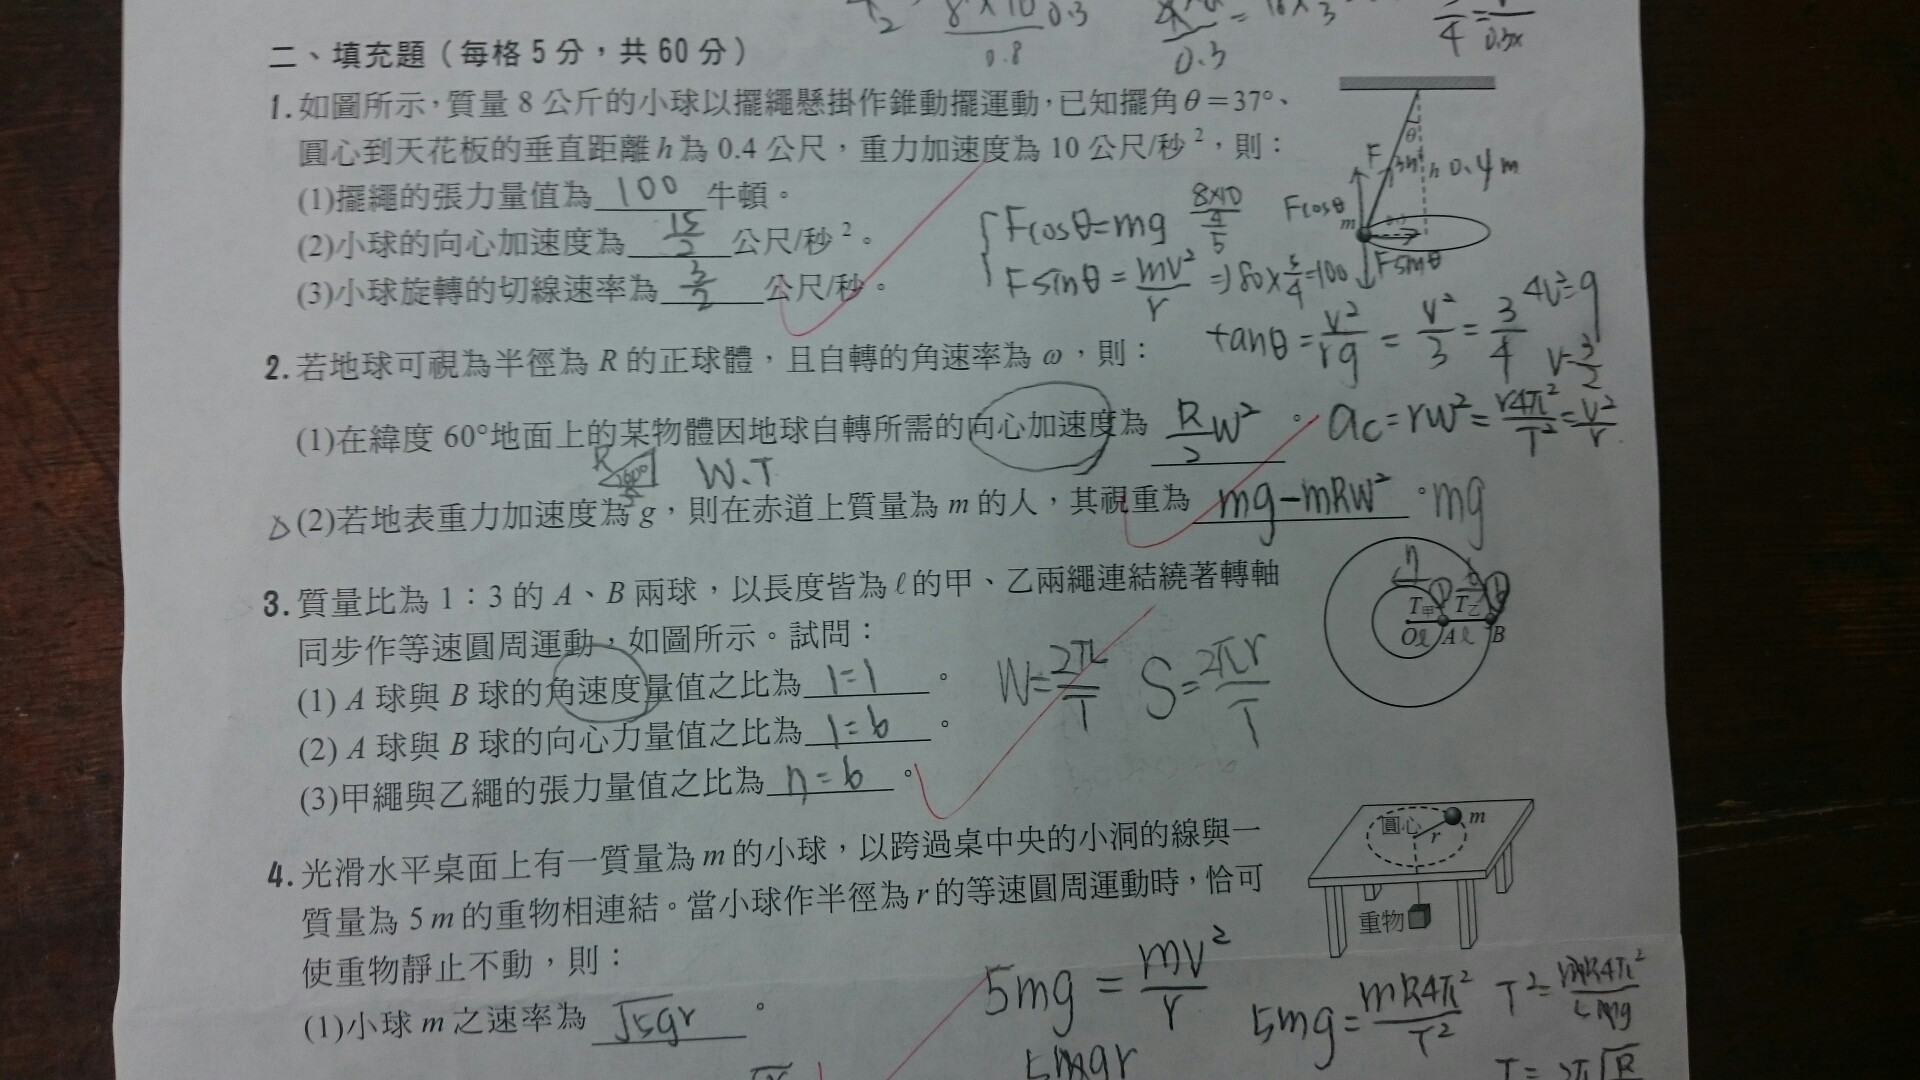 8×10 0.3
0.8
0.3
4 0.3x
二、填充題（每格5分，共60分）
1.如圖所示，質量8公斤的小球以擺繩懸掛作錐動擺運動，已知擺角θ=37°、
圓心到天花板的垂直距離h為0.4公尺，重力加速度為10公尺/秒²，則：
(1)擺繩的張力量值為 100 牛頓。
(2)小球的向心加速度為 15/2 公尺/秒²。
(3)小球旋轉的切線速率為 3/2 公尺/秒。
θ
F h 0.4m
Fcosθ m
Fsinθ
Fcosθ=mg 8×10/(4/5)
Fsinθ=mv²/r ⇒80×5/4=100
tanθ=v²/rg=v²/3=3/4 4v²=9
v=3/2
2.若地球可視為半徑為R的正球體，且自轉的角速率為ω，則：
(1)在緯度60°地面上的某物體因地球自轉所需的向心加速度為 R/2 W² 。 ac=rw²=r4π²/T²=v²/r
R 60° W.T
△(2)若地表重力加速度為g，則在赤道上質量為m的人，其視重為 mg-mRW² 。mg
3.質量比為1：3的A、B兩球，以長度皆為ℓ的甲、乙兩繩連結繞著轉軸
同步作等速圓周運動，如圖所示。試問：
(1) A球與B球的角速度量值之比為 1=1 。
(2) A球與B球的向心力量值之比為 1=6 。
(3)甲繩與乙繩的張力量值之比為 7=6 。
W=2π/T S=2πr/T
7
T甲 T乙
O ℓ A ℓ B
4.光滑水平桌面上有一質量為m的小球，以跨過桌中央的小洞的線與一
質量為5m的重物相連結。當小球作半徑為r的等速圓周運動時，恰可
使重物靜止不動，則：
(1)小球m之速率為 √5gr 。
圓心 r m
重物
5mg=mv²/r
5mg=mR4π²/T² T²=mR4π²/5mg
5mgr
T=2π√R